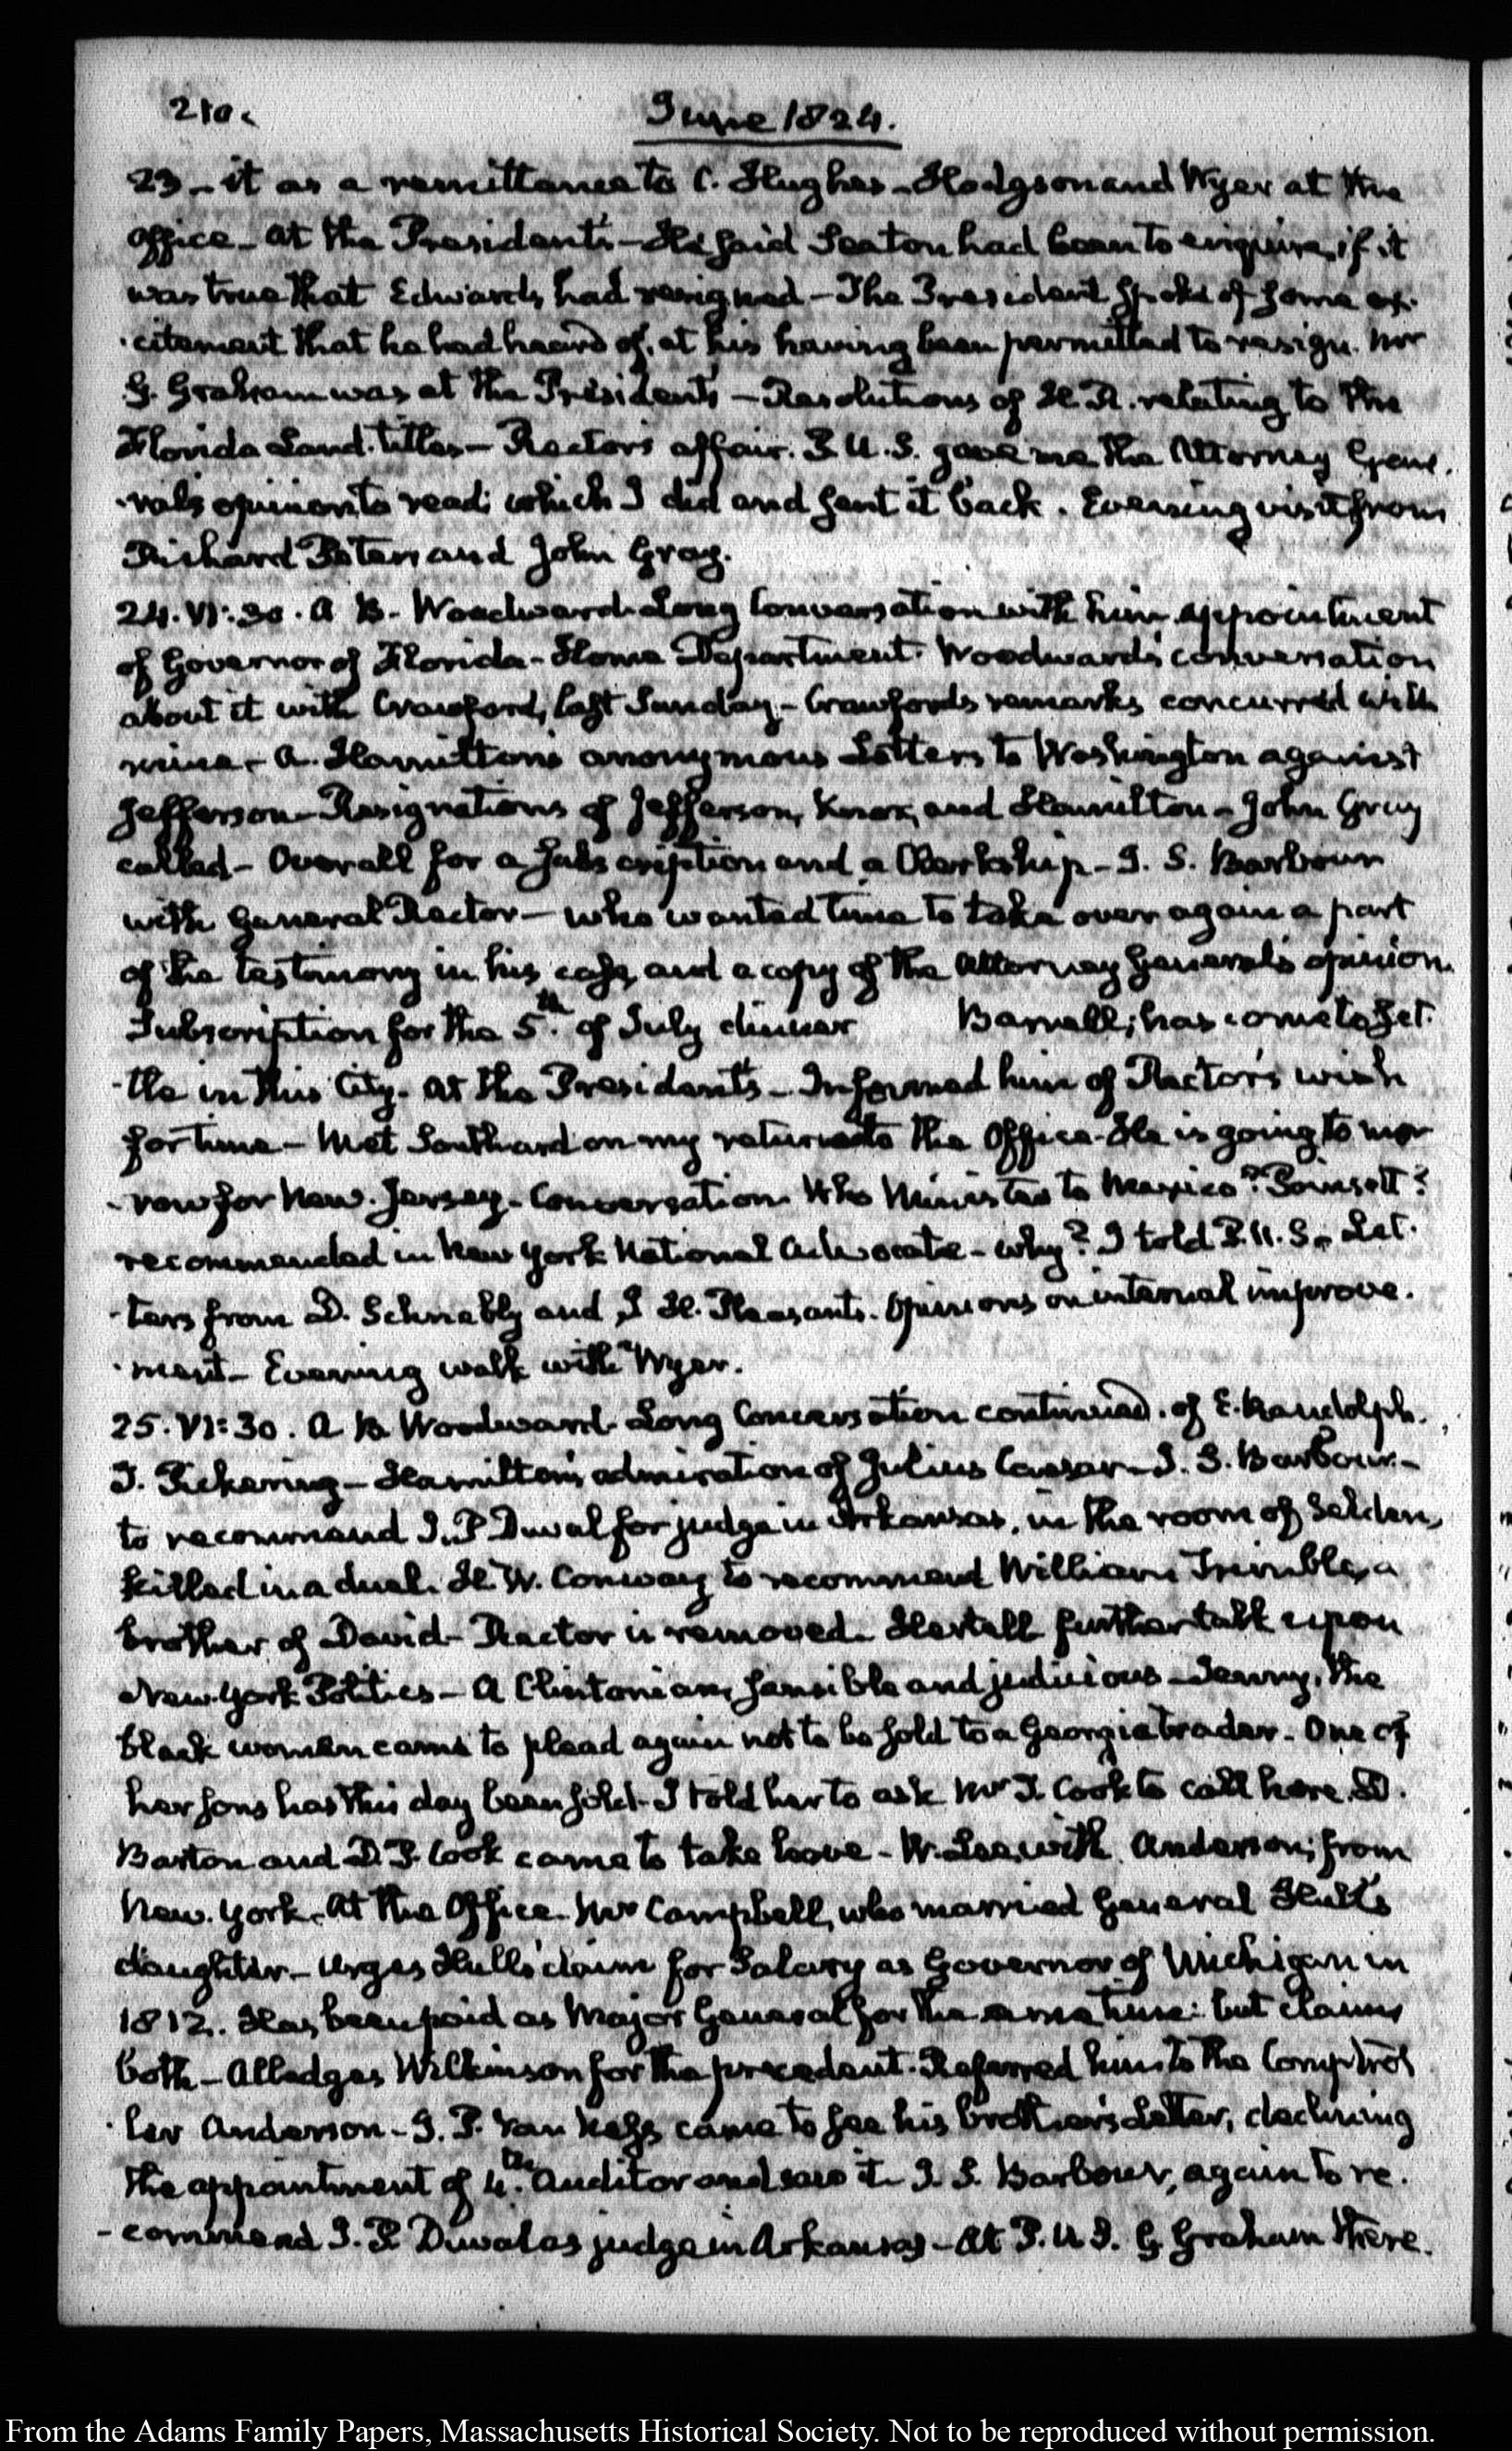 210.
June 1824.
23 - it as a remittance to C. Hughes - Hodgson and Wyer at the
office - at the President's - He said Seaton had been to enquire, if it
was true that Edwards had resigned - The President spoke of some ex-
-citement that he had heard of, at his having been permitted to resign. Mr
G. Graham was at the President's - Resolutions of H. R. relating to the
Florida Land titles - Rector's affair. P. U. S. gave me the Attorney Gene-
-rals opinion to read; which I did and sent it back. Evening visit from
Richard Peters and John Gray.
24. VI:30. A B. Woodward. Long Conversation with him appointment
of Governor of Florida - Home Department. Woodward's conversation
about it with Crawford, last Sunday - Crawfords remarks concurred with
mine - A. Hamilton's anonymous Letters to Washington against
Jefferson - Resignations of Jefferson, Knox, and Hamilton - John Gray
called - Overall for a subscription and a Clerkship - J. S. Barbour
with General Rector - who wanted time to take over again a part
of the testimony in his case, and a copy of the Attorney General's opinion.
Subscription for the 5th. of July dinner Barnell; has come to set-
-tle in this City - At the President's - Informed him of Rector's wish
for time - Met Southard on my return to the Office - He is going to mor-
-row for New-Jersey - Conversation. Who Minister to Mexico? Poinsett?
recommended in New York National Advocate - why? I told P. U. S. - Let-
-ters from D. Schnebly and J H. Pleasants. Opinions on internal improve-
-ment - Evening walk with Wyer.
25. VI:30. A B. Woodward. Long Conversation continued. of E. Randolph.
T. Pickering - Hamilton's admiration of Julius Caesar - J. S. Barbour -
to recommend J. P Duval for judge in Arkansas, in the room of Selden,
killed in a duel. H. W. Conway to recommend William Trimble, a
brother of David - Rector is removed. Hertell further talk upon
New-York Politics - A Clintonian, sensible and judicious - Jenny, the
black woman came to plead again not to be sold to a Georgia trader - One of
her sons has this day been sold - I told her to ask Mr T. Cook to call here. D.
Barton and D. P. Cook came to take leave - W. Lee, with Anderson; from
New-York. At the Office - Mr Campbell, who married General Hull's
daughter - urges Hull's claim for Salary as Governor of Michigan in
1812. Has been paid as Major General for the same time: but claims
both - Alledges Wilkinson for the precedent. Referred him to the Comptrol-
-ler Anderson - J. P. Van Ness came to see his brother's Letter, declining
the appointment of 4th. Auditor and saw it. J. S. Barbour, again to re-
-commend J. P. Duval as judge in Arkansas - At P. U. S. G. Graham there.
From the Adams Family Papers, Massachusetts Historical Society. Not to be reproduced without permission.